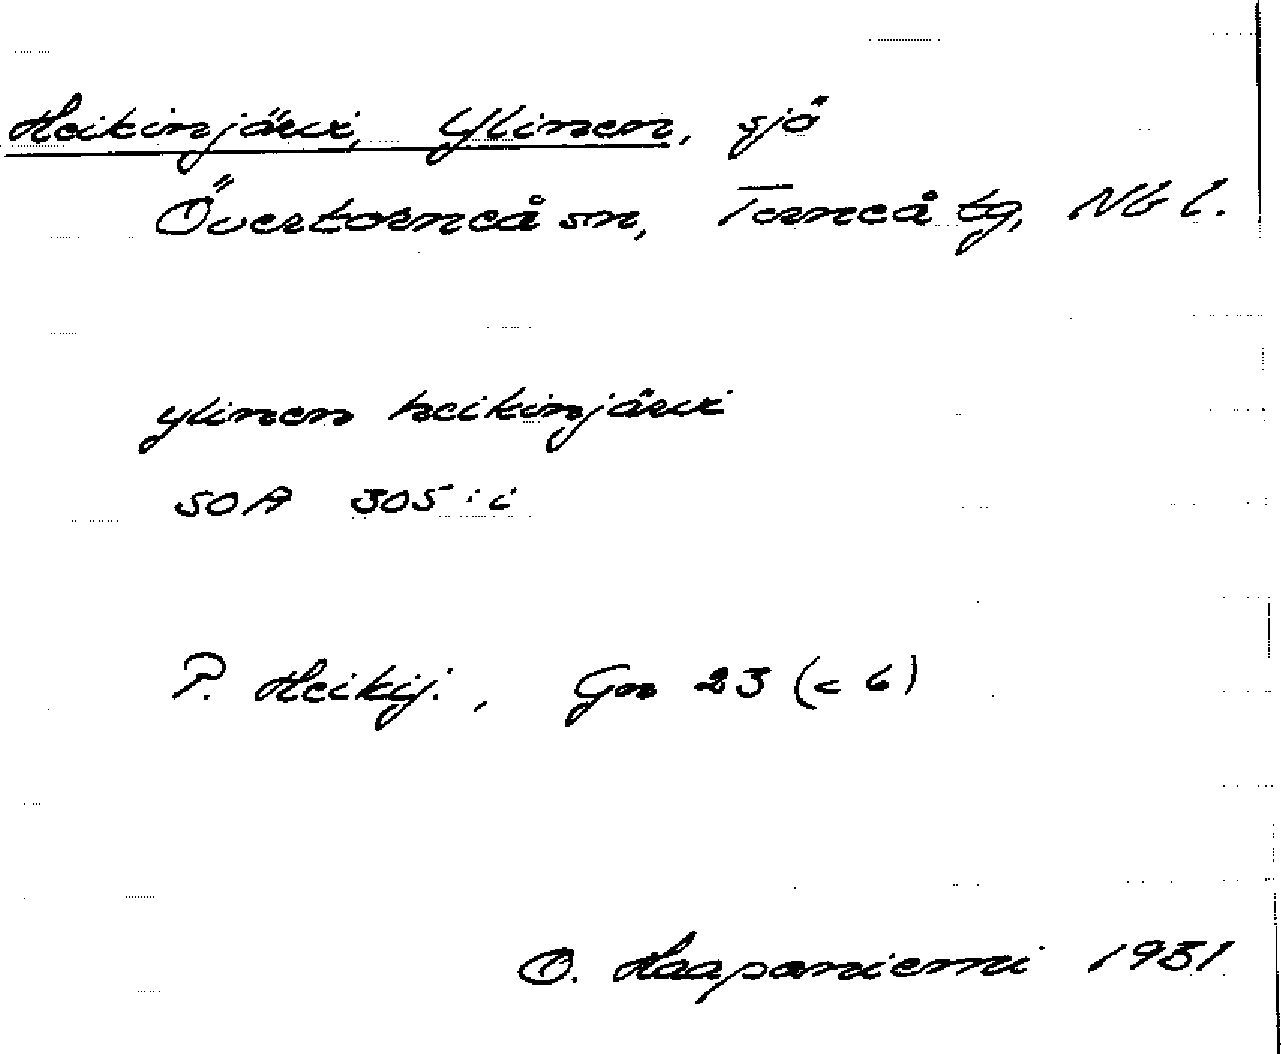 Heikinjärvi, Ylinen, sjö
Övertorneå sn, Torneå tg, Nb l.
ylinen heikinjärvi
SOA 305:i
P. Heikij., Gn 23 (c 6)
O. Haapaniemi 1931